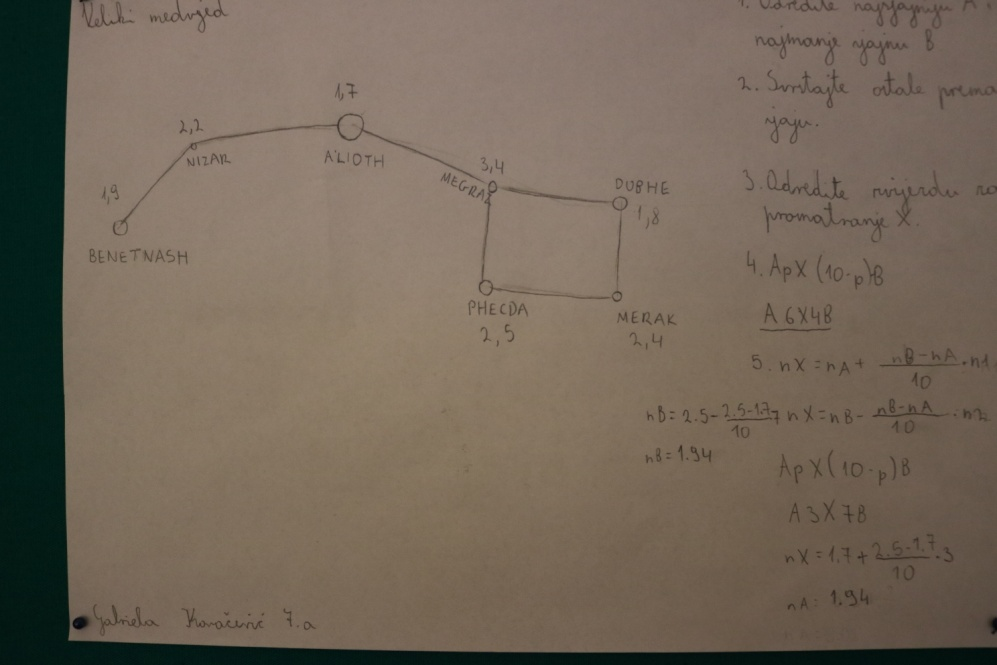 Veliki medvjed
1,7
2,2
NIZAR
ALIOTH
1,9
BENETNASH
3,4
MEGRAZ
DUBHE
1,8
PHECDA
2,5
MERAK
2,4
1. Odredite najsjajniju A i
najmanje sjajnu B
2. Svrstajte ostale prema
sjaju.
3. Odredite zvijezdu za
promatranje X.
4. ApX(10-p)B
A6X4B
5. nX = nA + nB-nA/10 · n1
nB = 2.5 - 2.5-1.7/10 7
nX = nB - nB-nA/10 · n2
nB = 1.94
ApX(10-p)B
A3X7B
nX = 1.7 + 2.5-1.7/10 · 3
nA: 1.94
Gabriela 7.a